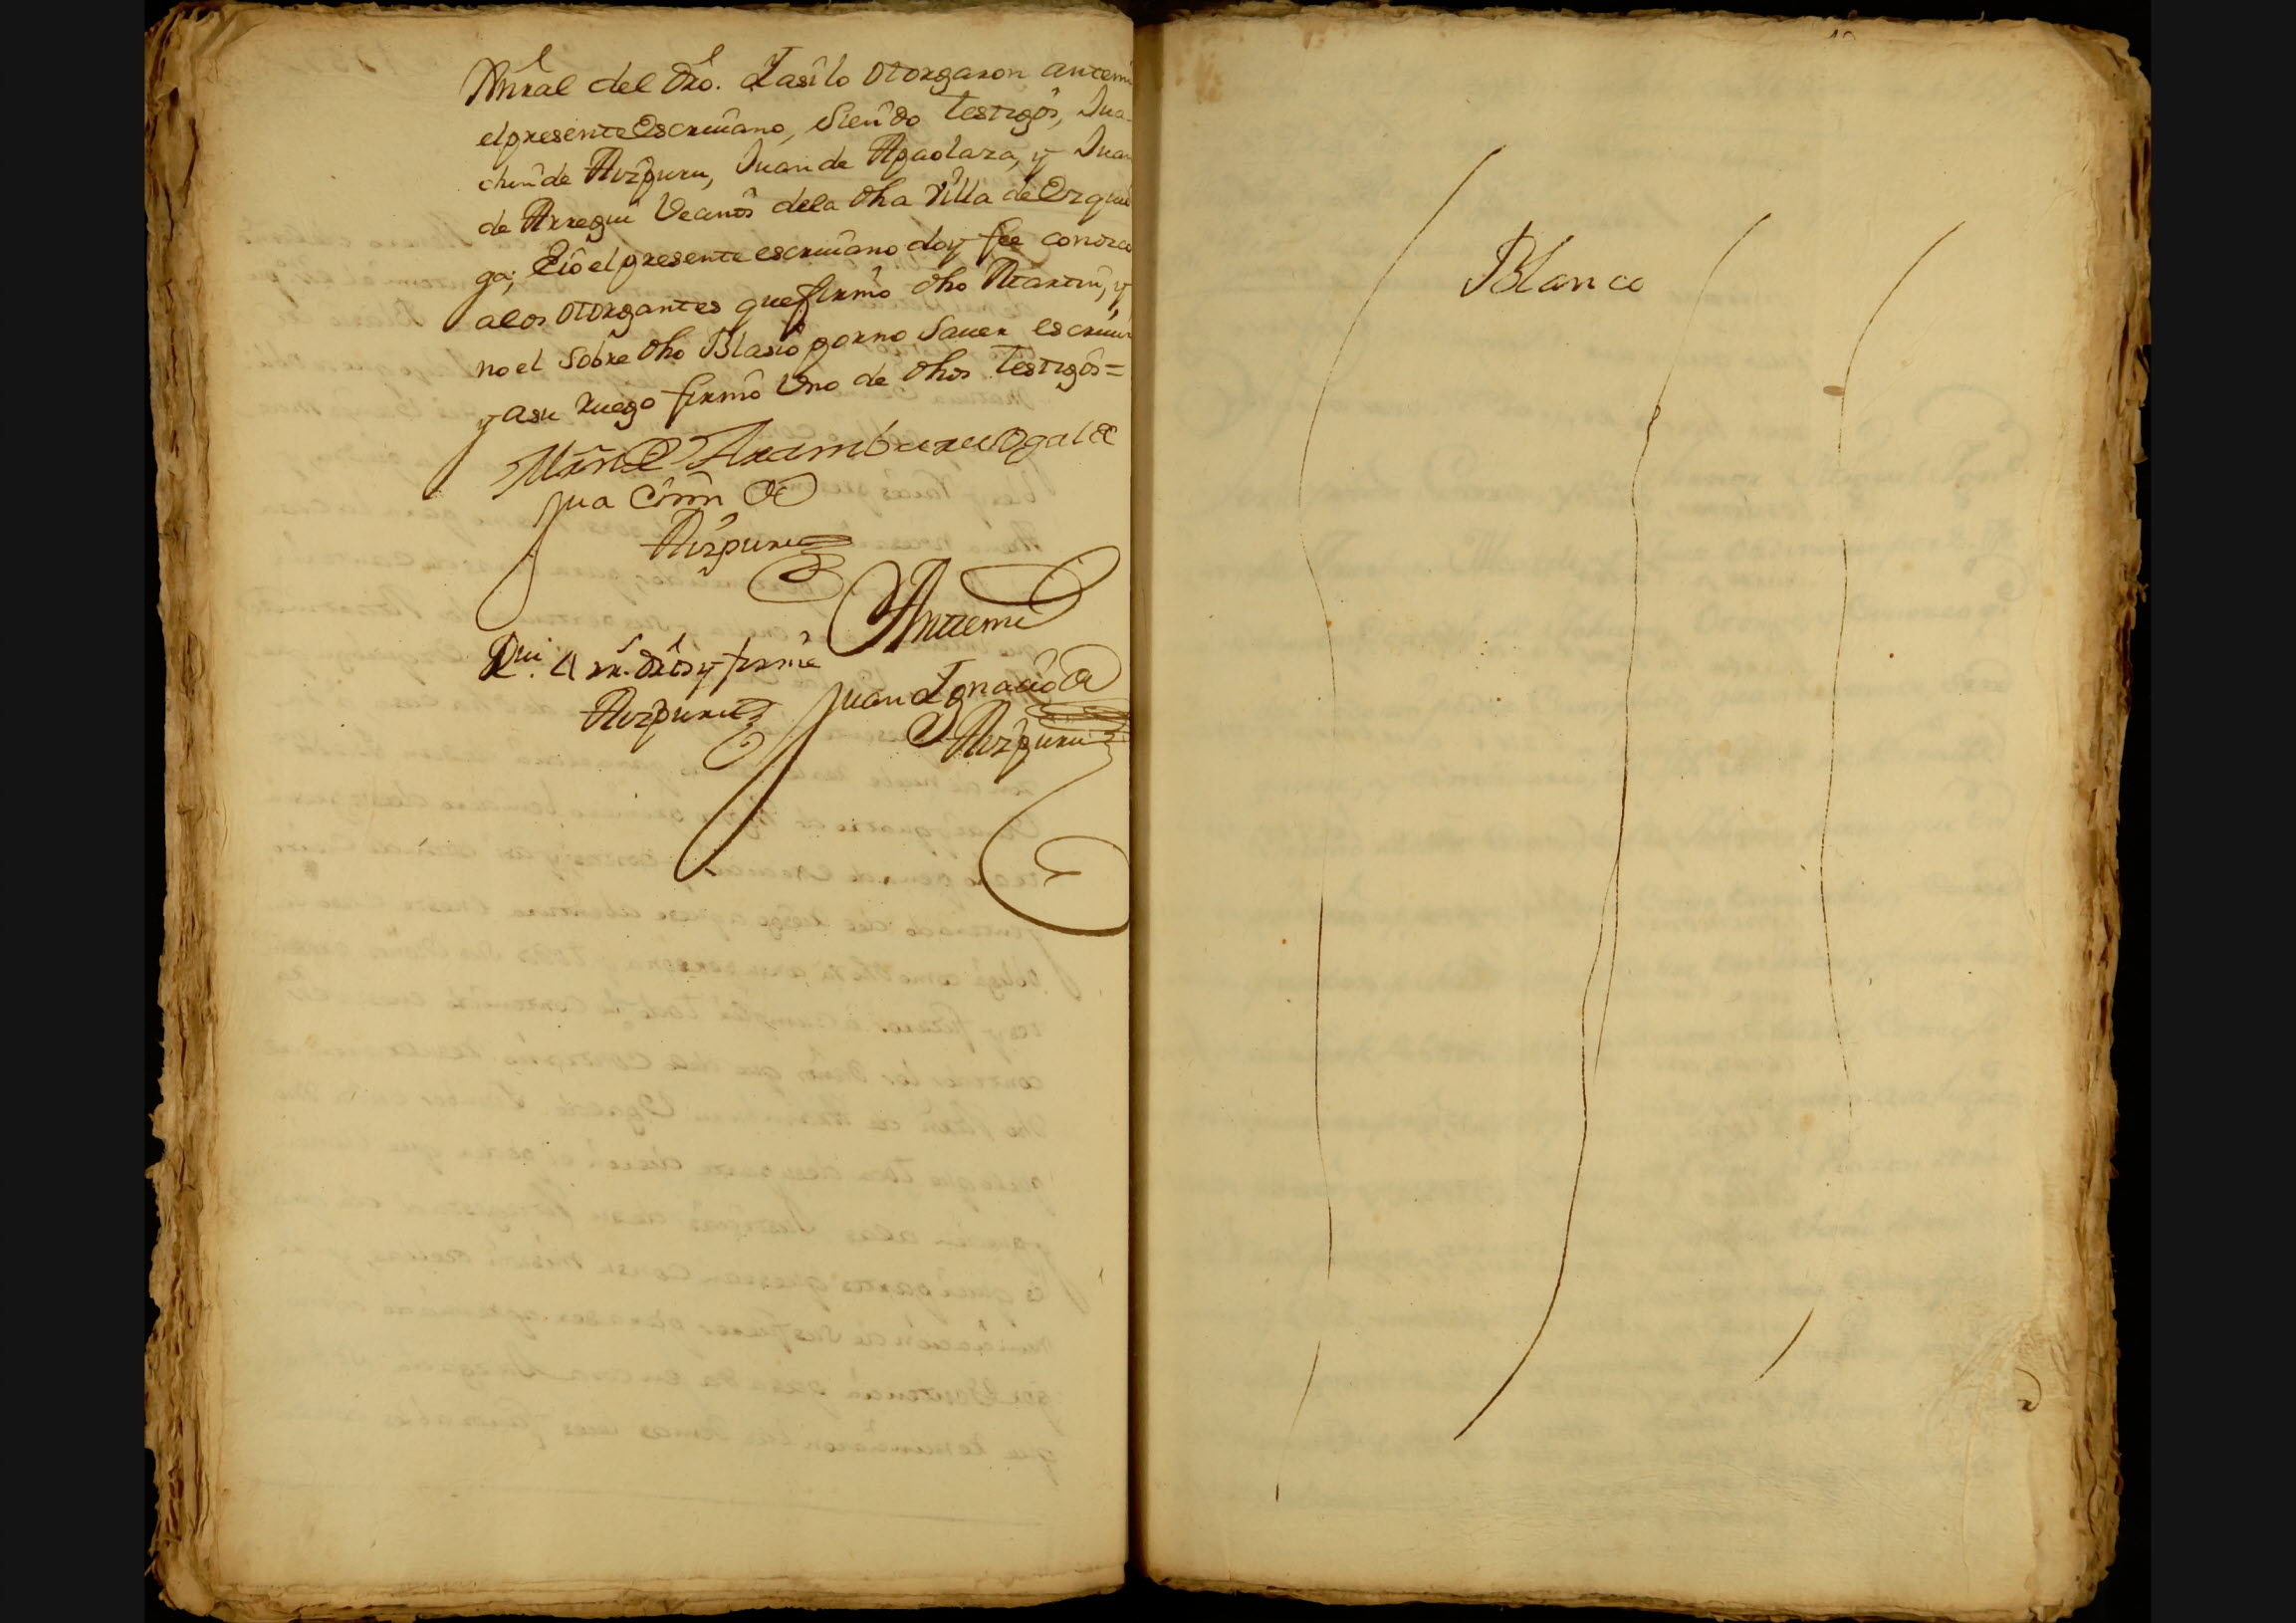 Gnral del dro. Y asilo otorgaron antemi
elpresente escriuano, siendo testigos, Jua-
chin de Aizpuru, Juan de Apaolaza, y Juan
de Arregui vecinos dela dha villa de Ezquio
ga; Eio el presente escriuano doy fee conozco
alos otorgantes que firmo dho Martin, y
no el sobre dho Blasio por no sauer escriuir
y asu ruego firmo uno de dhos testigos =
Mrn de Aramburu Ogalde
Juachin de
Aizpuru
Antemi
Rui. 4 rr. dros y firme
Aizpuru
Juan Ignacio de
Aizpuru
Blanco